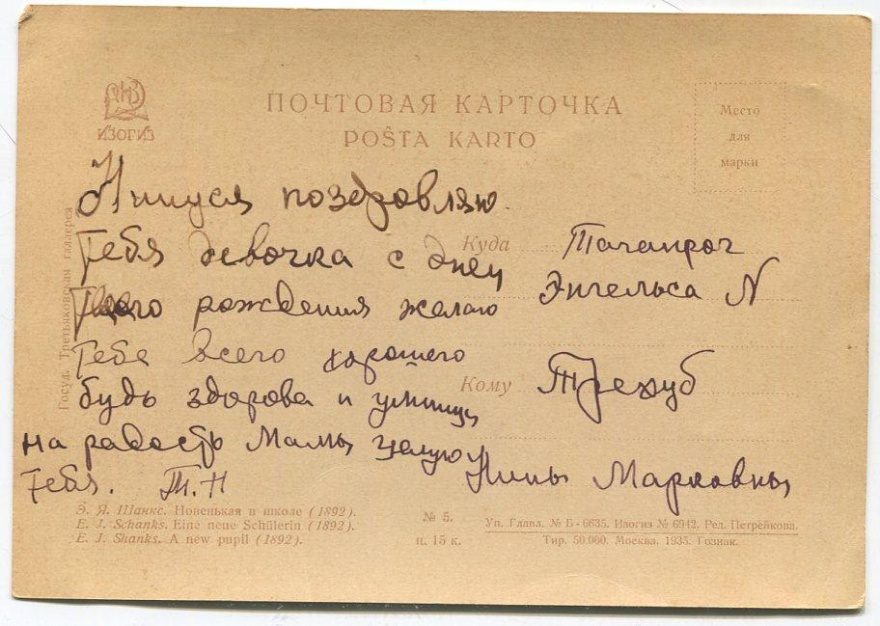 ИЗОГИЗ
ПОЧТОВАЯ КАРТОЧКА
POŜTA KARTO
Место
для
марки
Госуд. Третьяковская галлерея
Нинуся поздровляю
Тебя девочка с днем
Твоего рождения желаю
Тебе всего хорошего
будь здорова и умница
на радость Мамы целую
Тебя. Т.Н
Куда Таганрог
Энгельса N
Кому Трегуб
Нины Марковны
Э. Я. Шанкс. Новенькая в школе (1892).
E. J. Schanks. Eine neue Schülerin (1892).
E. J. Shanks. A new pupil (1892).
№ 5.
ц. 15 к.
Уп. Главл. № Б - 6635. Изогиз № 6942. Ред. Петрейкова.
Тир. 50.000. Москва, 1935. Гознак.